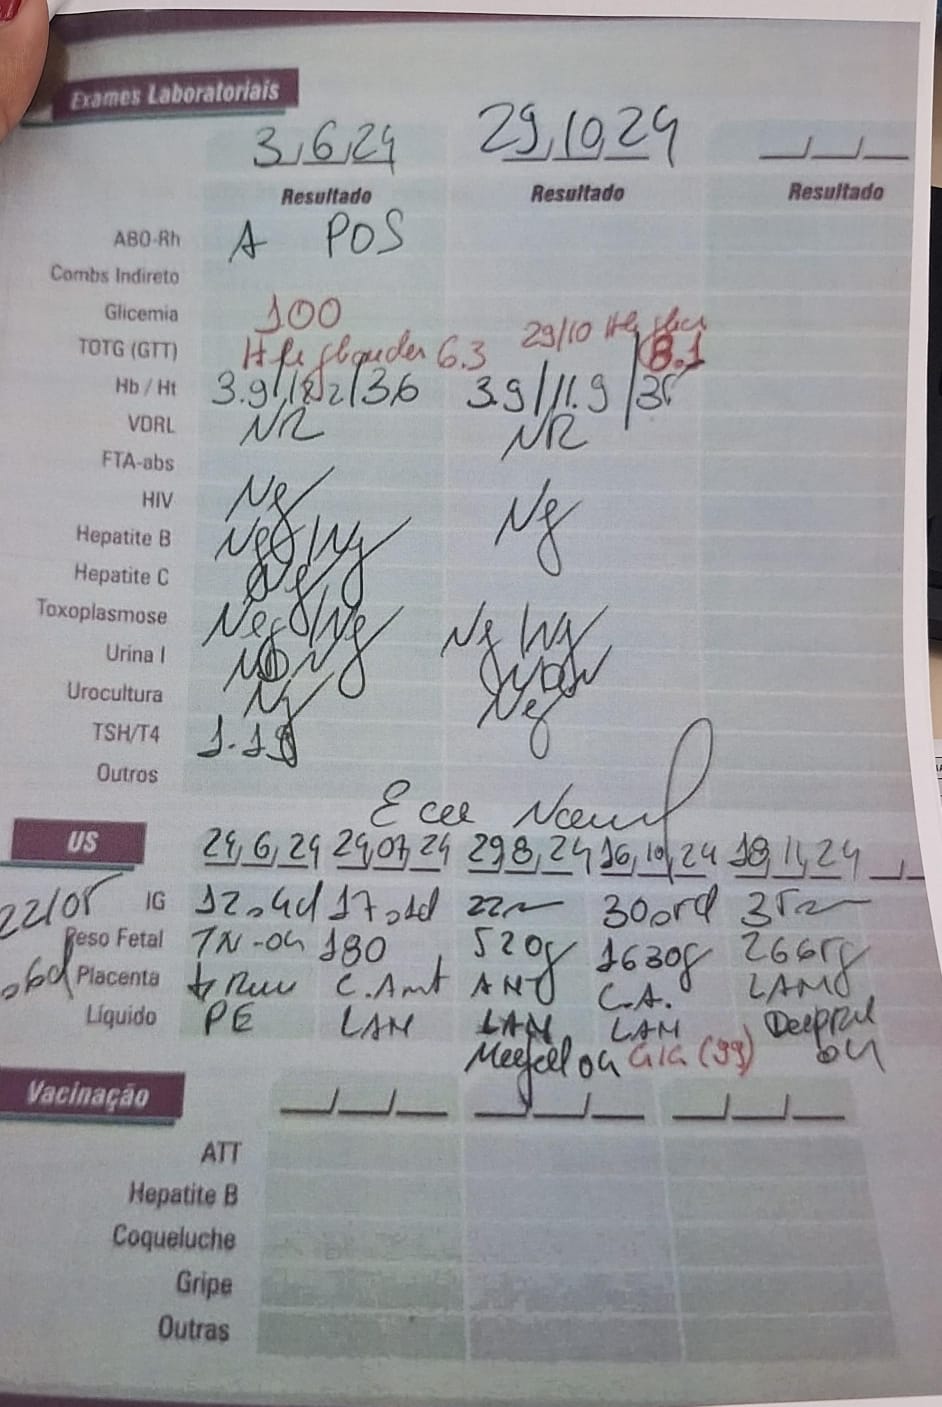 Exames Laboratoriais
3,6,24 29,10,24 __/__/__
Resultado Resultado Resultado
ABO-Rh A POS
Combs Indireto
Glicemia 100
TOTG (GTT) 6.3 29/10 8.1
Hb / Ht 3.9/12,2/36 3.9/11.9/35
VDRL NR NR
FTA-abs
HIV Neg Neg
Hepatite B Neg/Neg
Hepatite C Neg
Toxoplasmose Neg/Neg Neg/Neg
Urina I
Urocultura Neg Neg
TSH/T4 1.18
Outros
US 24,6,24 29,07,24 29,8,24 16,10,24 18,11,24
22/05 IG 12s4d 17s1d 22s 30s5d 35s
Peso Fetal TN-OK 180 520g 1630g 2665g
6d Placenta C.Ant ANT C.A. LAM
Líquido PE LAN LAN LAN
OK GIG (99) OK
Vacinação __/__/__ __/__/__ __/__/__
ATT
Hepatite B
Coqueluche
Gripe
Outras